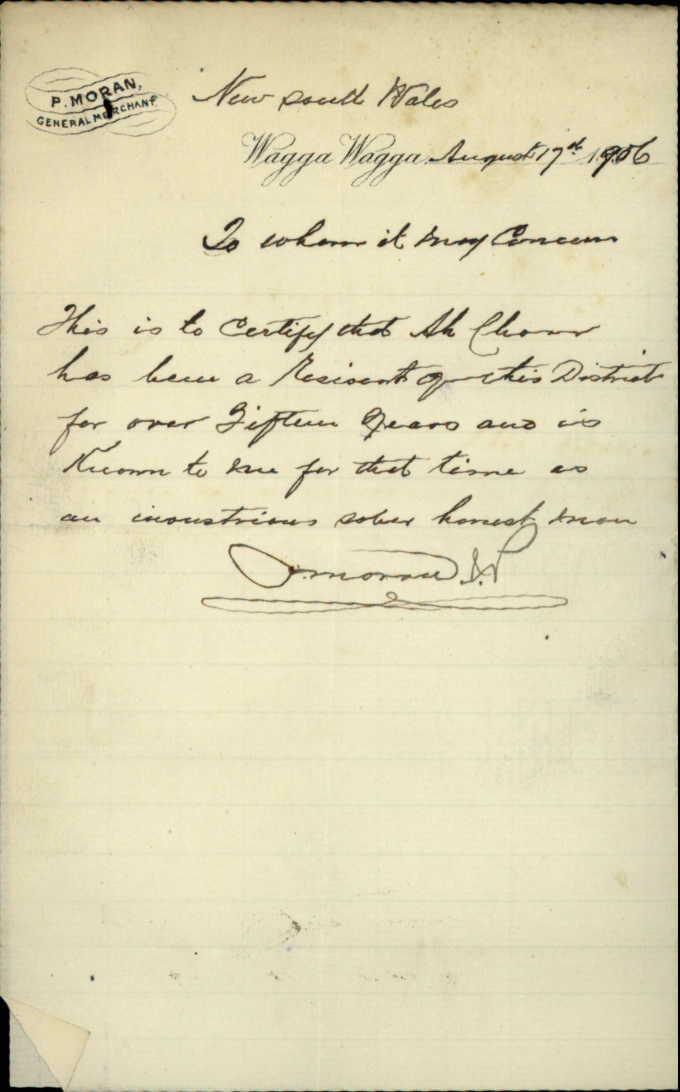 P. MORAN,
GENERAL MERCHANT.
New South Wales
Wagga Wagga, August 17th 1906
To whom it may Concern
This is to Certify that Ah Chong
has been a Resident of this District
for over Fifteen Years and is
Known to me for that time as
an industrious sober honest man
P. Moran J.P.